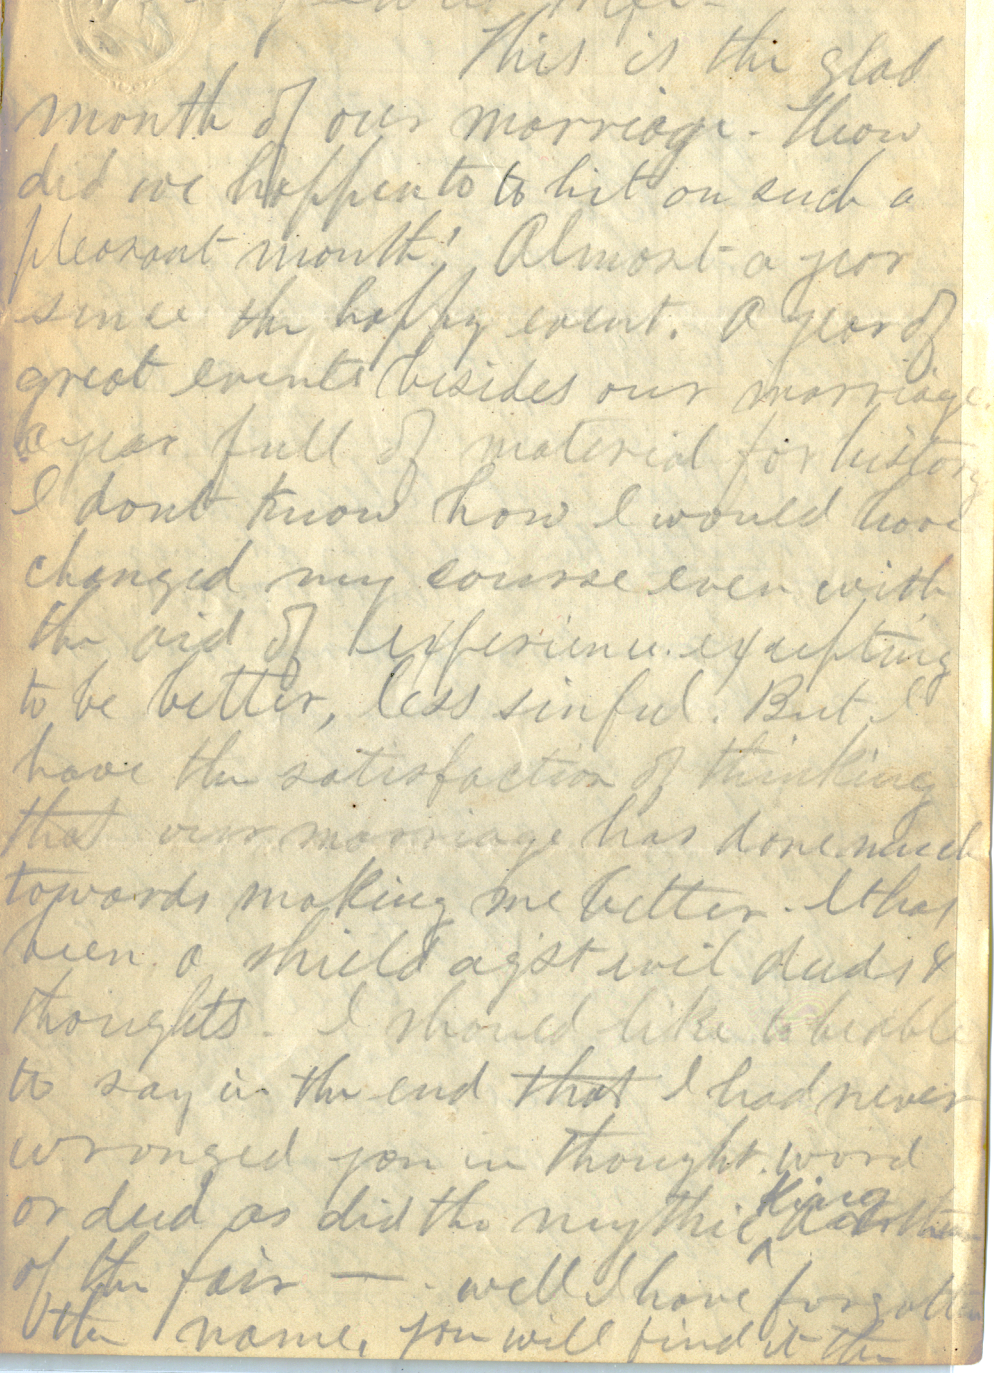 This is the glad
month of our marriage. How
did we happen to to hit on such a
pleasant month! Almost a year
since the happy event. A year of
great events besides our marriage.
a year full of material for history
I dont know how I would have
changed my course even with
the aid of experience. excepting
to be better, less sinful. But I
have the satisfaction of thinking
that our marriage has done much
towards making me better. It has
been a shield agst evil deeds &
thoughts. I should like to be able
to say in the end that I had never
wronged you in thought, word
or deed as did the mythic King
of the fair — . well I have forgotten
the name, you will find it the